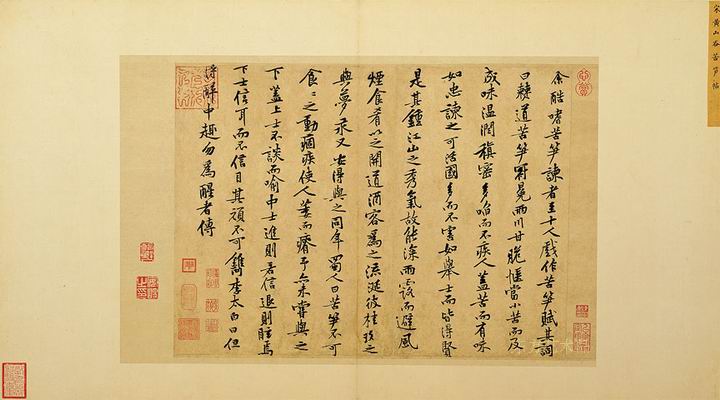 宋黃山谷苦笋帖
余酷嗜苦笋諫者至十人戲作苦笋賦其詞
曰僰道苦笋冠冕兩川甘脆愜當小苦而及
成味溫潤縝密多啗而不疾人蓋苦而有味
如忠諫之可活國多而不害如舉士而皆得賢
是其鍾江山之秀氣故能深雨露而避風
煙食肴以之開道酒客為之流涎彼桂玫之
與夢汞又安得與之同年蜀人曰苦笋不可
食〻之動痼疾使人萎而瘠予亦未嘗與之
下蓋上士不談而喻中士進則若信退則眩焉
下士信耳而不信目其頑不可鐫李太白曰但
得醉中趣勿為醒者傳